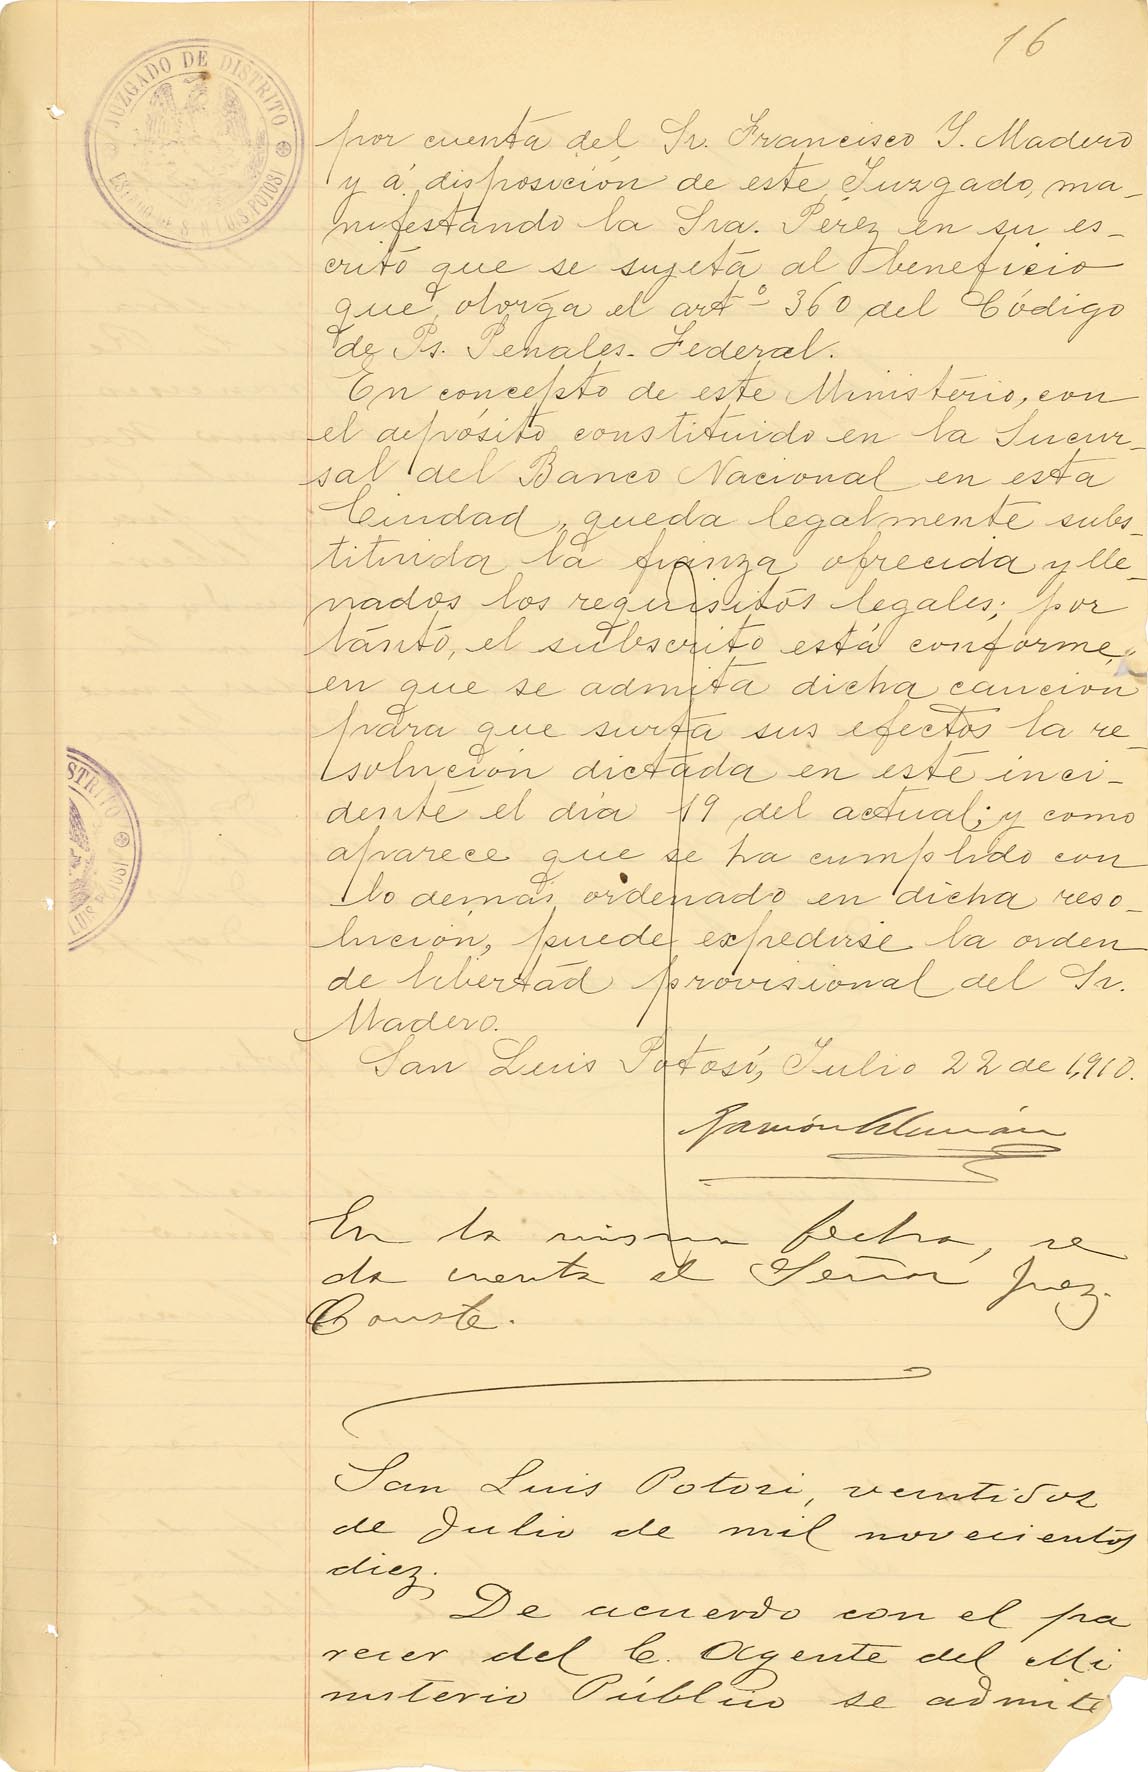 16
JUZGADO DE DISTRITO
por cuenta del Sr. Francisco Y. Madero
y á disposición de este Juzgado, ma-
nifestando la Sra. Pérez en su es-
crito que se sujeta al beneficio
que otorga el artº 360 del Código
de Ps. Penales Federal.
En concepto de este Ministerio, con
el depósito constituido en la Sucur-
sal del Banco Nacional en esta
Ciudad, queda legalmente subs-
tituida la fianza ofrecida y lle-
nados los requisitos legales; por
tanto, el subscrito está conforme,
en que se admita dicha caución
para que surta sus efectos la re-
solución dictada en este inci-
dente el día 19 del actual; y como
aparece que se ha cumplido con
lo demás ordenado en dicha reso-
lución, puede expedirse la orden
de libertad provisional del Sr.
Madero.
San Luis Potosí, Julio 22 de 1,910.
Ramón Alemán
En la misma fecha, se
da cuenta al Señor Juez.
Conste.
STRITO
San Luis Potosi, veintidos
de Julio de mil novecientos
diez.
De acuerdo con el pa
recer del C. Agente del Mi
nisterio Público se admite